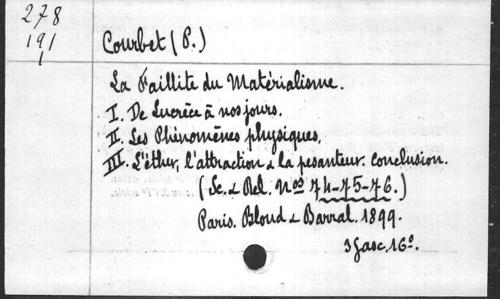 278
191
1
Courbet (P.)
La Faillite du Matérialisme.
I. De Lucrèce à nos jours.
II. Les Phénomènes physiques.
III. L'éther, l'attraction & la pesanteur. Conclusion.
(Sc. & Rel. Nos 74-75-76.)
Paris. Bloud & Barral. 1899.
3 fasc. 16º.